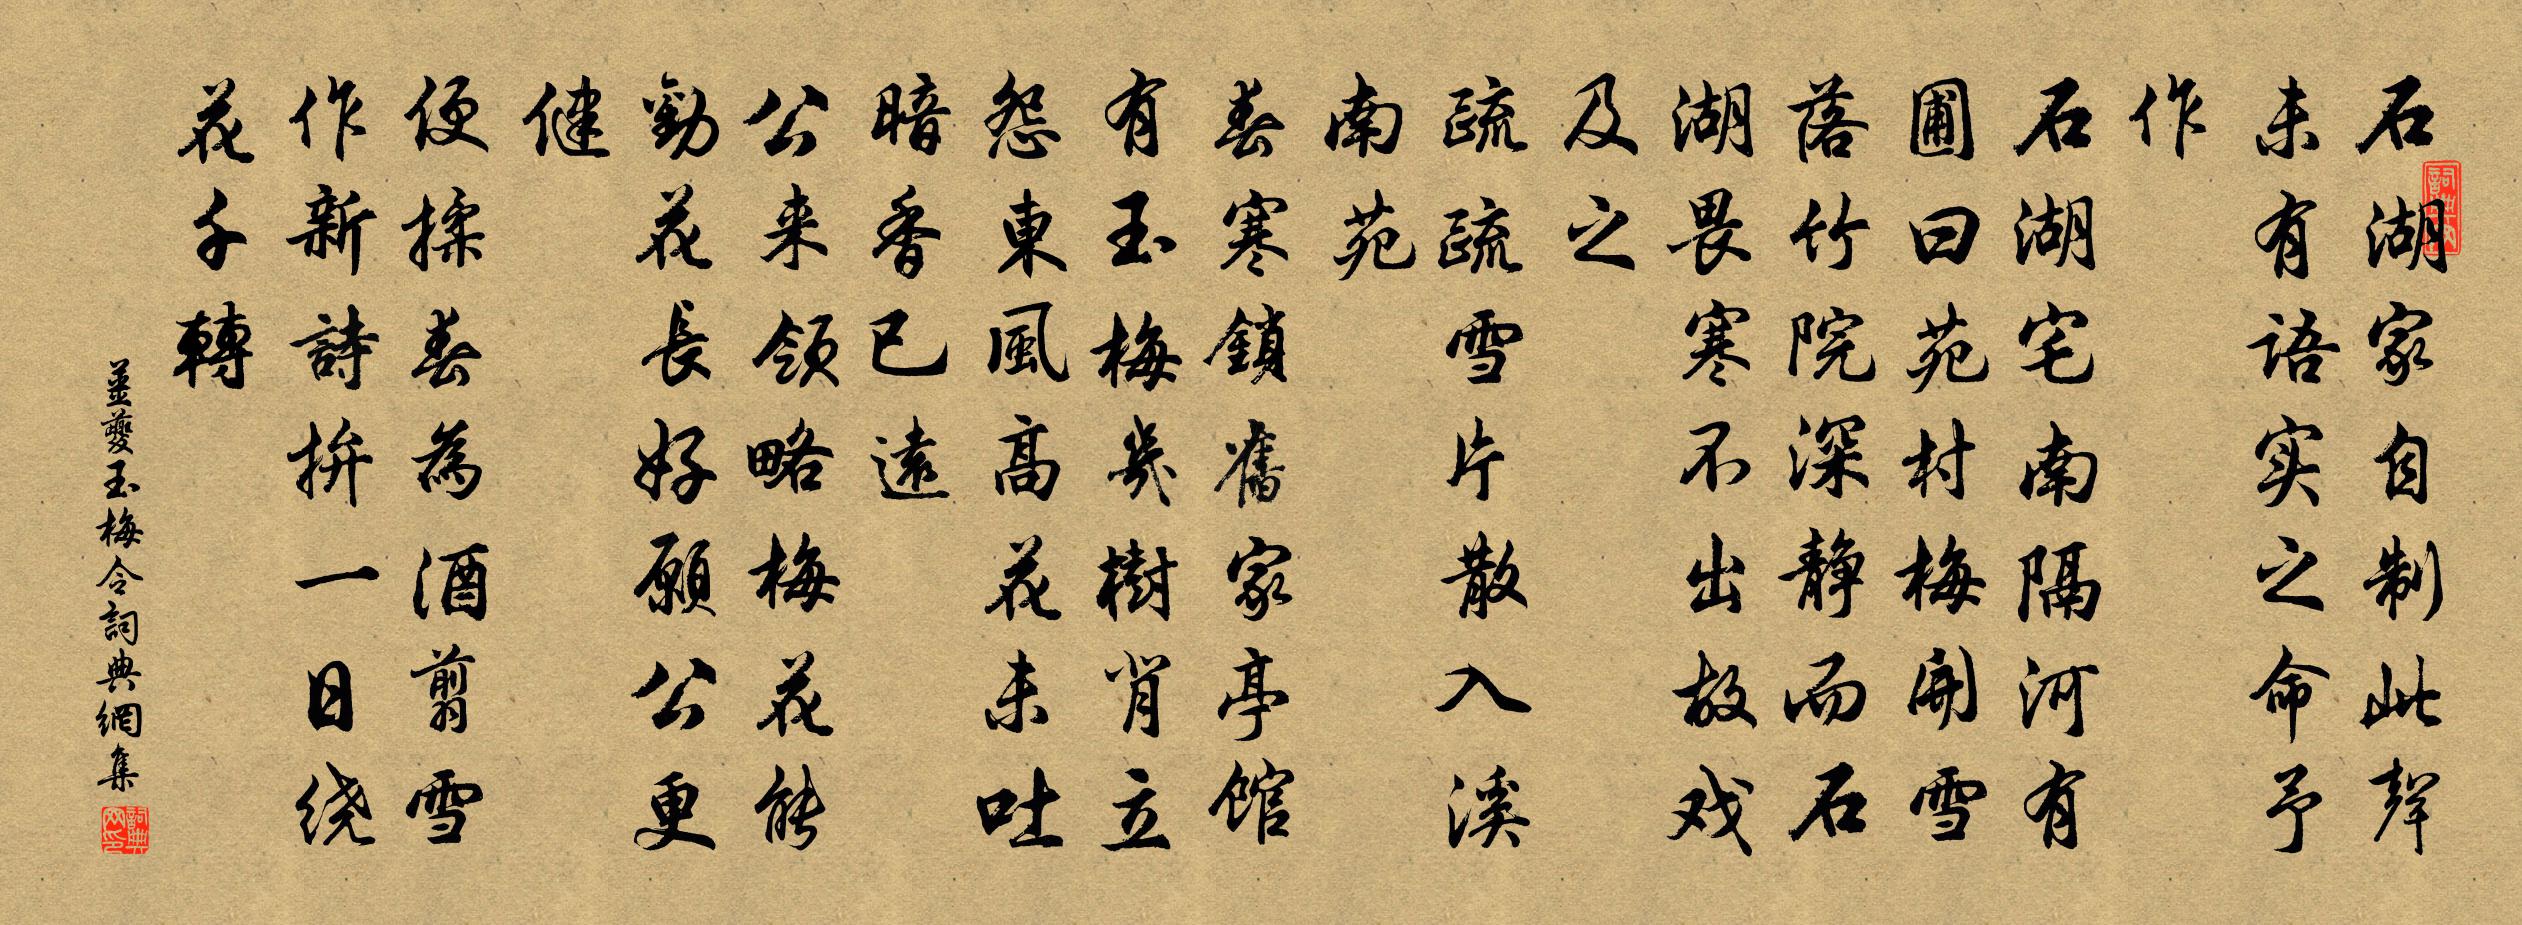 石湖家自制此聲
未有语实之命予
作
石湖宅南隔河有
圃曰苑村梅開雪
落竹院深静而石
湖畏寒不出故戏
及之
疏疏雪片散入溪
南苑
春寒鎖舊家亭館
有玉梅幾樹背立
怨東風高花未吐
暗香已遠
公来领略梅花能
勸花長好願公更
健
便揉春為酒剪雪
作新詩拚一日绕
花千轉
姜夔玉梅令詞典網集
詞典網印